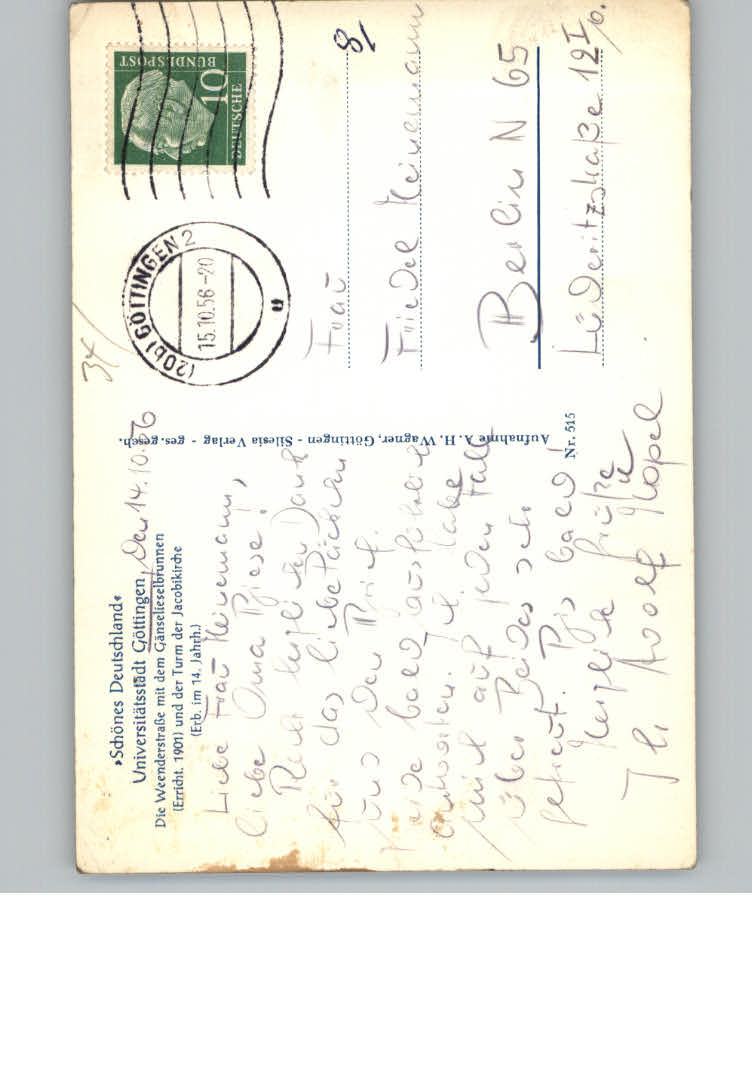 »Schönes Deutschland«
Universitätsstadt Göttingen, den 14.10.56
Die Weenderstraße mit dem Gänselieselbrunnen
(Erricht. 1901) und der Turm der Jacobikirche
(Erb. im 14. Jahrh.)
Liebe Frau Heinemann,
liebe Oma Biese!
Recht herzlichen Dank
für das liebe Päckchen
und den Brief.
werde bald ausführlich
antworten. Ich habe
mich auf jeden Fall
über Beides sehr
gefreut. Bis bald!
Herzliche Grüße
Ihr Adolf
Aufnahme A. H. Wagner, Göttingen - Silesia Verlag - ges. gesch.
Nr. 515
34
(20b) GÖTTINGEN 2
15.10.56-20
u
DEUTSCHE
BUNDESPOST
10
18
Frau
Friedel Heinemann
Berlin N 65
Lüderitzstraße 12 I